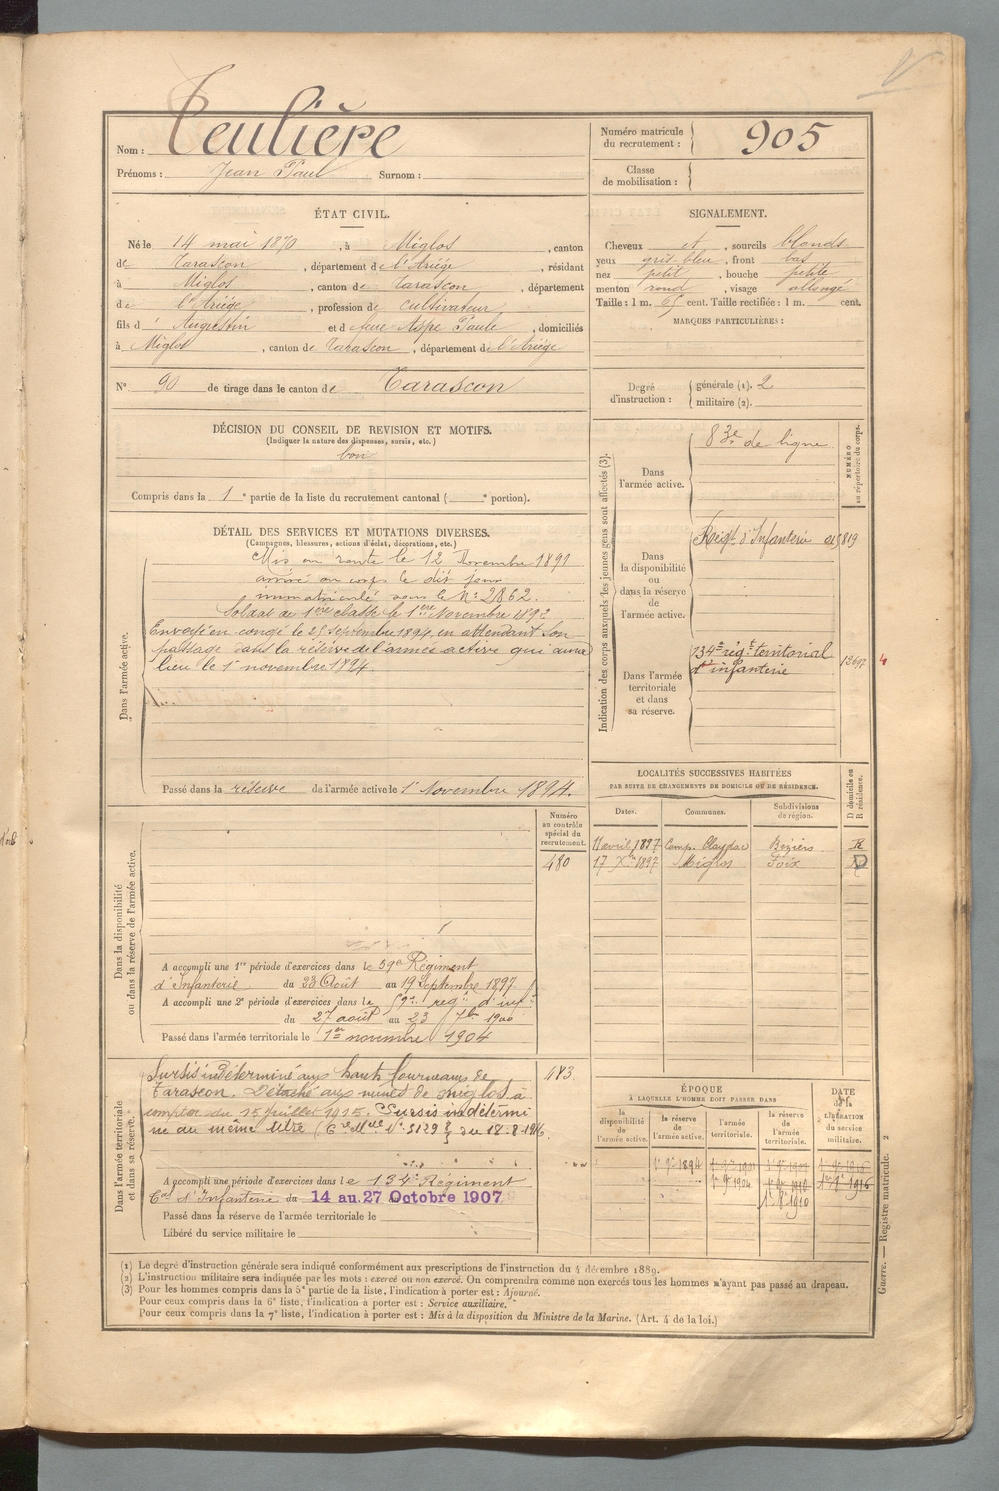 Nom : Teulière
Prénoms : Jean Paul Surnom :
Numéro matricule du recrutement : 905
Classe de mobilisation :
ÉTAT CIVIL.
Né le 14 mai 1870, à Miglos, canton
de Tarascon, département de l'Ariége, résidant
à Miglos, canton de Tarascon, département
de l'Ariége, profession de cultivateur,
fils d' Augustin et d feue Aspe Paule, domiciliés
à Miglos, canton de Tarascon, département de l'Ariége
N° 90 de tirage dans le canton de Tarascon
SIGNALEMENT.
Cheveux et, sourcils blonds
yeux gris-bleu, front bas
nez petit, bouche petite
menton rond, visage allongé
Taille : 1 m. 65 cent. Taille rectifiée : 1 m. cent.
MARQUES PARTICULIÈRES :
Degré d'instruction : générale (1). 2
militaire (2).
DÉCISION DU CONSEIL DE REVISION ET MOTIFS.
(Indiquer la nature des dispenses, sursis, etc.)
bon
Compris dans la 1e partie de la liste du recrutement cantonal ( e portion).
DÉTAIL DES SERVICES ET MUTATIONS DIVERSES.
(Campagnes, blessures, actions d'éclat, décorations, etc.)
Dans l'armée active.
Mis en route le 12 Novembre 1891
arrivé au corps le dit jour
immatriculé sous le N° 2862.
Soldat de 1ère classe le 1er Novembre 1892
Envoyé en congé le 25 Septembre 1894, en attendant son
passage dans la réserve de l'armée active qui aura
lieu le 1er novembre 1894
Passé dans la réserve de l'armée active le 1er Novembre 1894.
Indication des corps auxquels les jeunes gens sont affectés (3).
NUMÉRO au répertoire du corps.
Dans l'armée active.
83e de ligne
Dans la disponibilité ou dans la réserve de l'armée active.
Régt d'Infanterie
Dans l'armée territoriale et dans sa réserve.
134e régt territorial
d'infanterie
LOCALITÉS SUCCESSIVES HABITÉES
PAR SUITE DE CHANGEMENTS DE DOMICILE OU DE RÉSIDENCE.
Dates. Communes. Subdivisions de région. D domicile ou R résidence.
11 avril 1897 Béziers R
17 Xbre 1897 Miglos Foix D
Dans la disponibilité ou dans la réserve de l'armée active.
Numéro au contrôle spécial du recrutement.
480
A accompli une 1re période d'exercices dans le 59e Régiment
d'Infanterie du 23 Août au 19 Septembre 1897.
A accompli une 2e période d'exercices dans le 59e regt d'inf
du 27 août au 23 7bre 1900
Passé dans l'armée territoriale le 1er novembre 1904
Dans l'armée territoriale et dans sa réserve.
Sursis indéterminé aux hauts fourneaux de
Tarascon. Détaché aux mines de miglos à
compter du 15 juillet 1915. Sursis indétermi
né au même titre du 18-8-1916.
A accompli une période d'exercices dans le 134e Régiment
Cal d'Infanterie du 14 au 27 Octobre 1907
Passé dans la réserve de l'armée territoriale le
Libéré du service militaire le
ÉPOQUE
À LAQUELLE L'HOMME DOIT PASSER DANS
la disponibilité de l'armée active. la réserve de l'armée active. l'armée territoriale. la réserve de l'armée territoriale.
DATE de la LIBÉRATION du service militaire.
(1) Le degré d'instruction générale sera indiqué conformément aux prescriptions de l'instruction du 4 décembre 1889.
(2) L'instruction militaire sera indiquée par les mots : exercé ou non exercé. On comprendra comme non exercés tous les hommes n'ayant pas passé au drapeau.
(3) Pour les hommes compris dans la 5e partie de la liste, l'indication à porter est : Ajourné.
Pour ceux compris dans la 6e liste, l'indication à porter est : Service auxiliaire.
Pour ceux compris dans la 7e liste, l'indication à porter est : Mis à la disposition du Ministre de la Marine. (Art. 4 de la loi.)
Guerre. — Registre matricule. 2